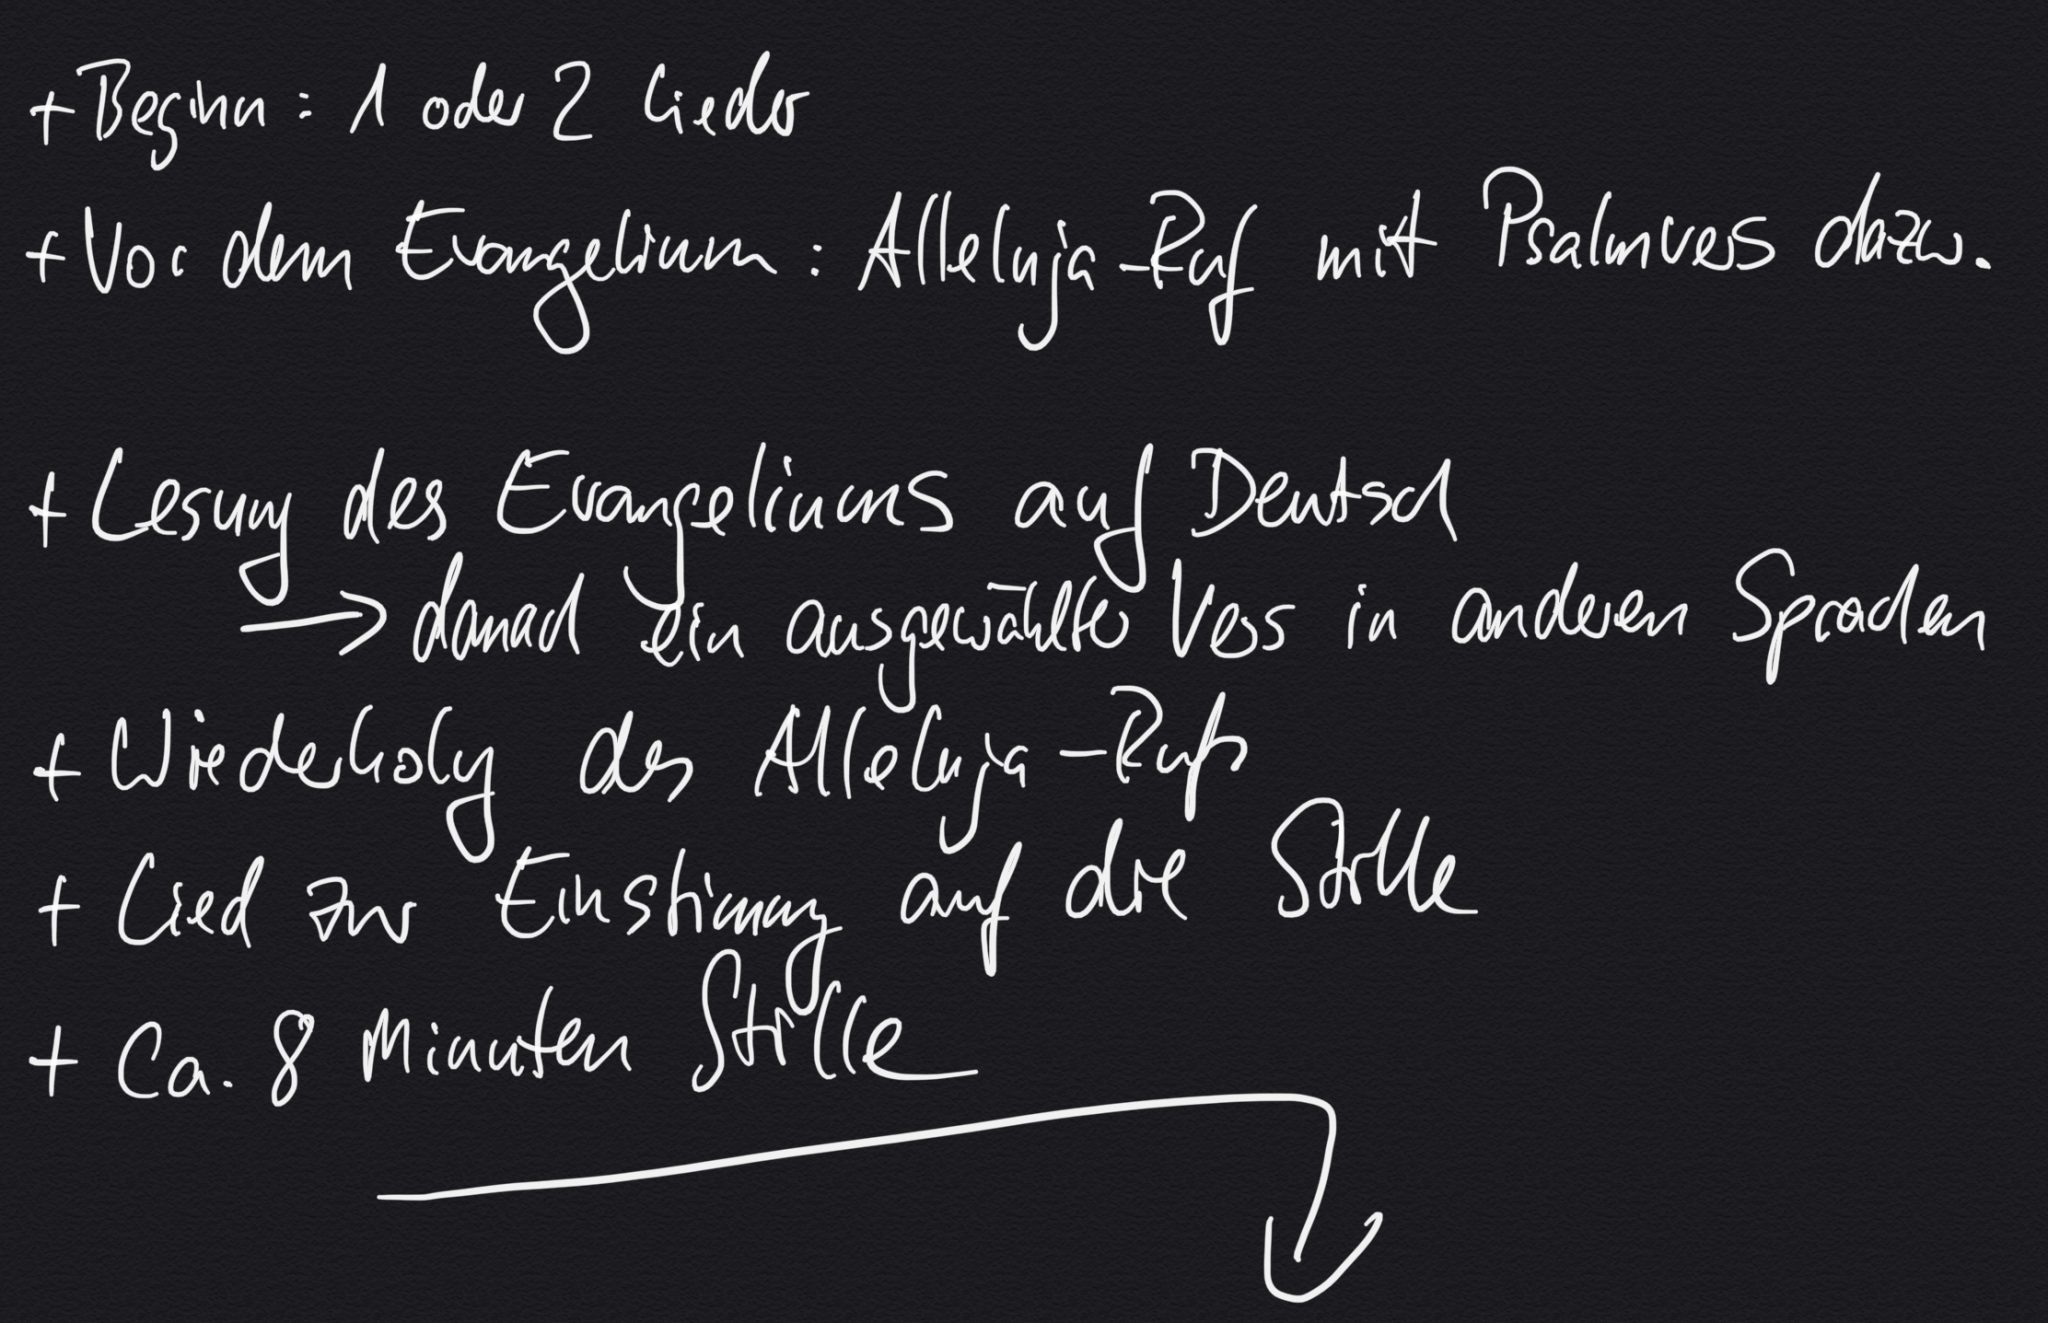 + Beginn: 1 oder 2 Lieder
+ Vor dem Evangelium: Alleluja-Ruf mit Psalmvers dazw.
+ Lesung des Evangeliums auf Deutsch
→ danach ein ausgewählter Vers in anderen Sprachen
+ Wiederholg des Alleluja-Rufs
+ Lied zur Einstimmung auf die Stille
+ Ca. 8 Minuten Stille